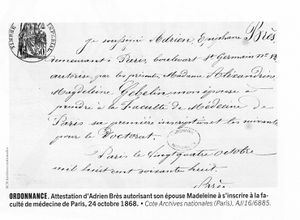 je soussigné Adrien Stéphane Brès
demeurant à Paris, boulevart St Germain n° 12
autorise par les présentes Madame Alexandrine
Magdeleine Gebelin mon épouse à
prendre à la Faculté de Médecine de
Paris ses premières inscriptions
pour le Doctorat.
Paris le vingt quatre octobre
mil huit cent soixante huit
Brès
ORDONNANCE. Attestation d'Adrien Brès autorisant son épouse Madeleine à s'inscrire à la fa-
culté de médecine de Paris, 24 octobre 1868. • Cote Archives nationales (Paris), AJ/16/6885.